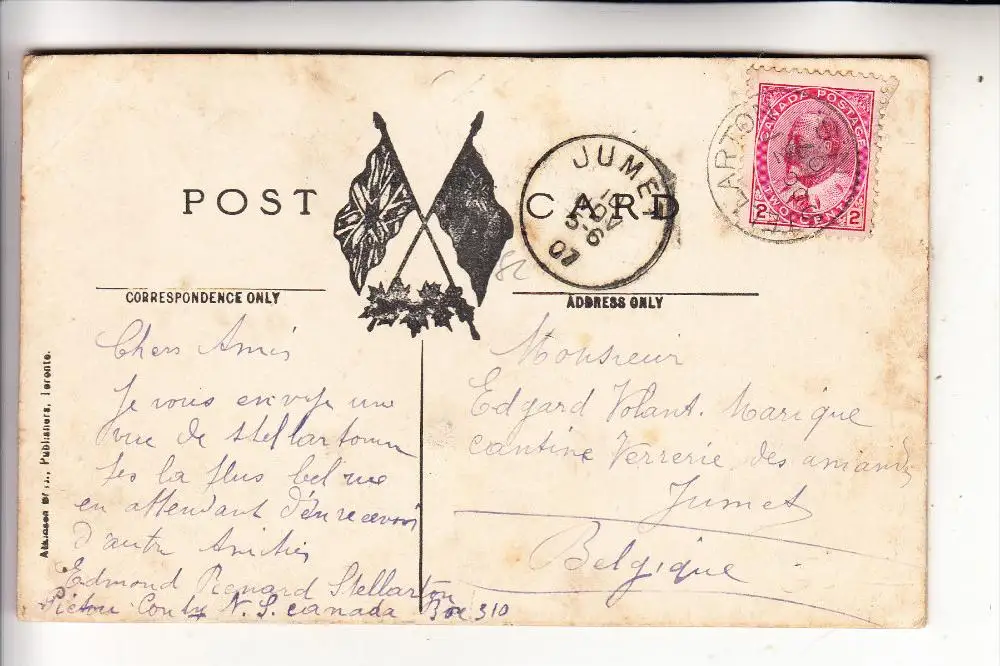 POST CARD
CORRESPONDENCE ONLY
ADDRESS ONLY
CANADA POSTAGE
2 TWO CENTS 2
LARTO
JUMET
10
NOV
5-6
07
82
Chers Amis
Je vous envoye une
vue de Stellartown
ses la plus bel rue
en attendant d'en recevoir
d'autre Amitiés
Edmond Renard Stellarton
Pictou Conty N. S. canada Box 310
Monsieur
Edgard Volant. Marique
cantine Verrerie des
Jumet
Belgique
Atkinson Publishers, Toronto.